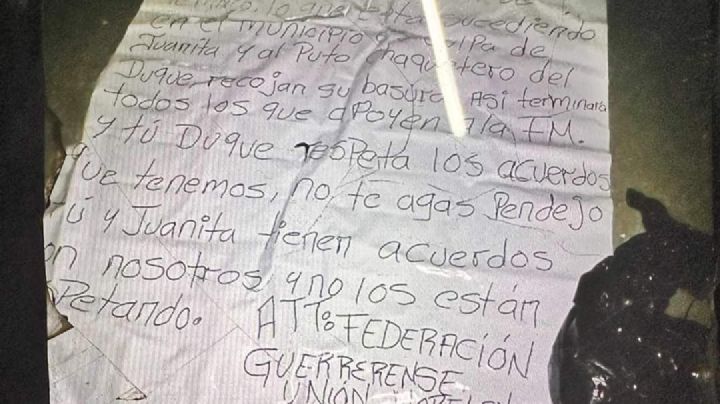 lo que está sucediendo
en el municipio culpa de
Juanita y al Puto chaquetero del
Duque, recojan su basura Así terminara
todos los que apoyen a la FM.
y tú Duque respeta los acuerdos
que tenemos, no te agas Pendejo
tú y Juanita tienen acuerdos
con nosotros y no los están
Petando. ATT: FEDERACIÓN
GUERRERENSE
UNIÓN